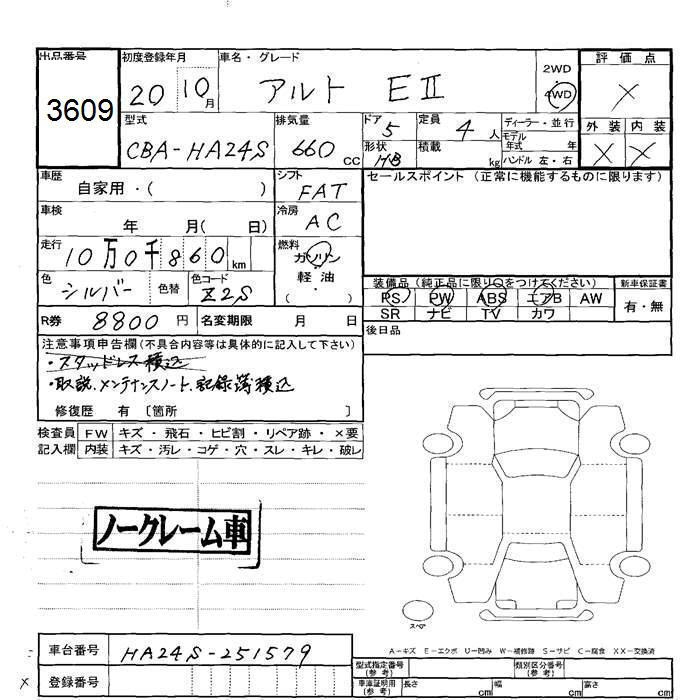 出品番号
3609
初度登録年月
20 10月
車名・グレード
アルト EⅡ
2WD
4WD
評価点
X
外装 内装
X X
型式
CBA-HA24S
排気量
660 CC
ドア
5
形状
HB
定員
4 人
積載
kg
ディーラー・並行
モデル
年式 年
ハンドル 左・右
車歴
自家用・( )
シフト
FAT
セールスポイント (正常に機能するものに限ります)
車検
年 月( 日)
冷房
AC
走行
10万0千860 km
燃料
ガソリン
軽油
( ・ )
色
シルバー
色替
色コード
Z2S
装備品 (純正品に限り○をつけてください)
PS PW ABS エアB AW
SR ナビ TV カワ
新車保証書
有・無
R券 8800 円
名変期限 月 日
後日品
注意事項申告欄(不具合内容等は具体的に記入して下さい)
・スタッドレス積込
・取説、メンテナンスノート、記録簿積込
修復歴 有 〔箇所 〕
検査員 FW キズ・飛石・ヒビ割・リペア跡・×要
記入欄 内装 キズ・汚レ・コゲ・穴・スレ・キレ・破レ
ノークレーム車
スペア
A-キズ E-エクボ U-凹み W-補修跡 S-サビ C-腐食 XX-交換済
車台番号 HA24S-251579
X 登録番号
型式指定番号
(参考)
類別区分番号
(参考)
車庫証明用
(参考)
長さ cm 幅 cm 高さ cm